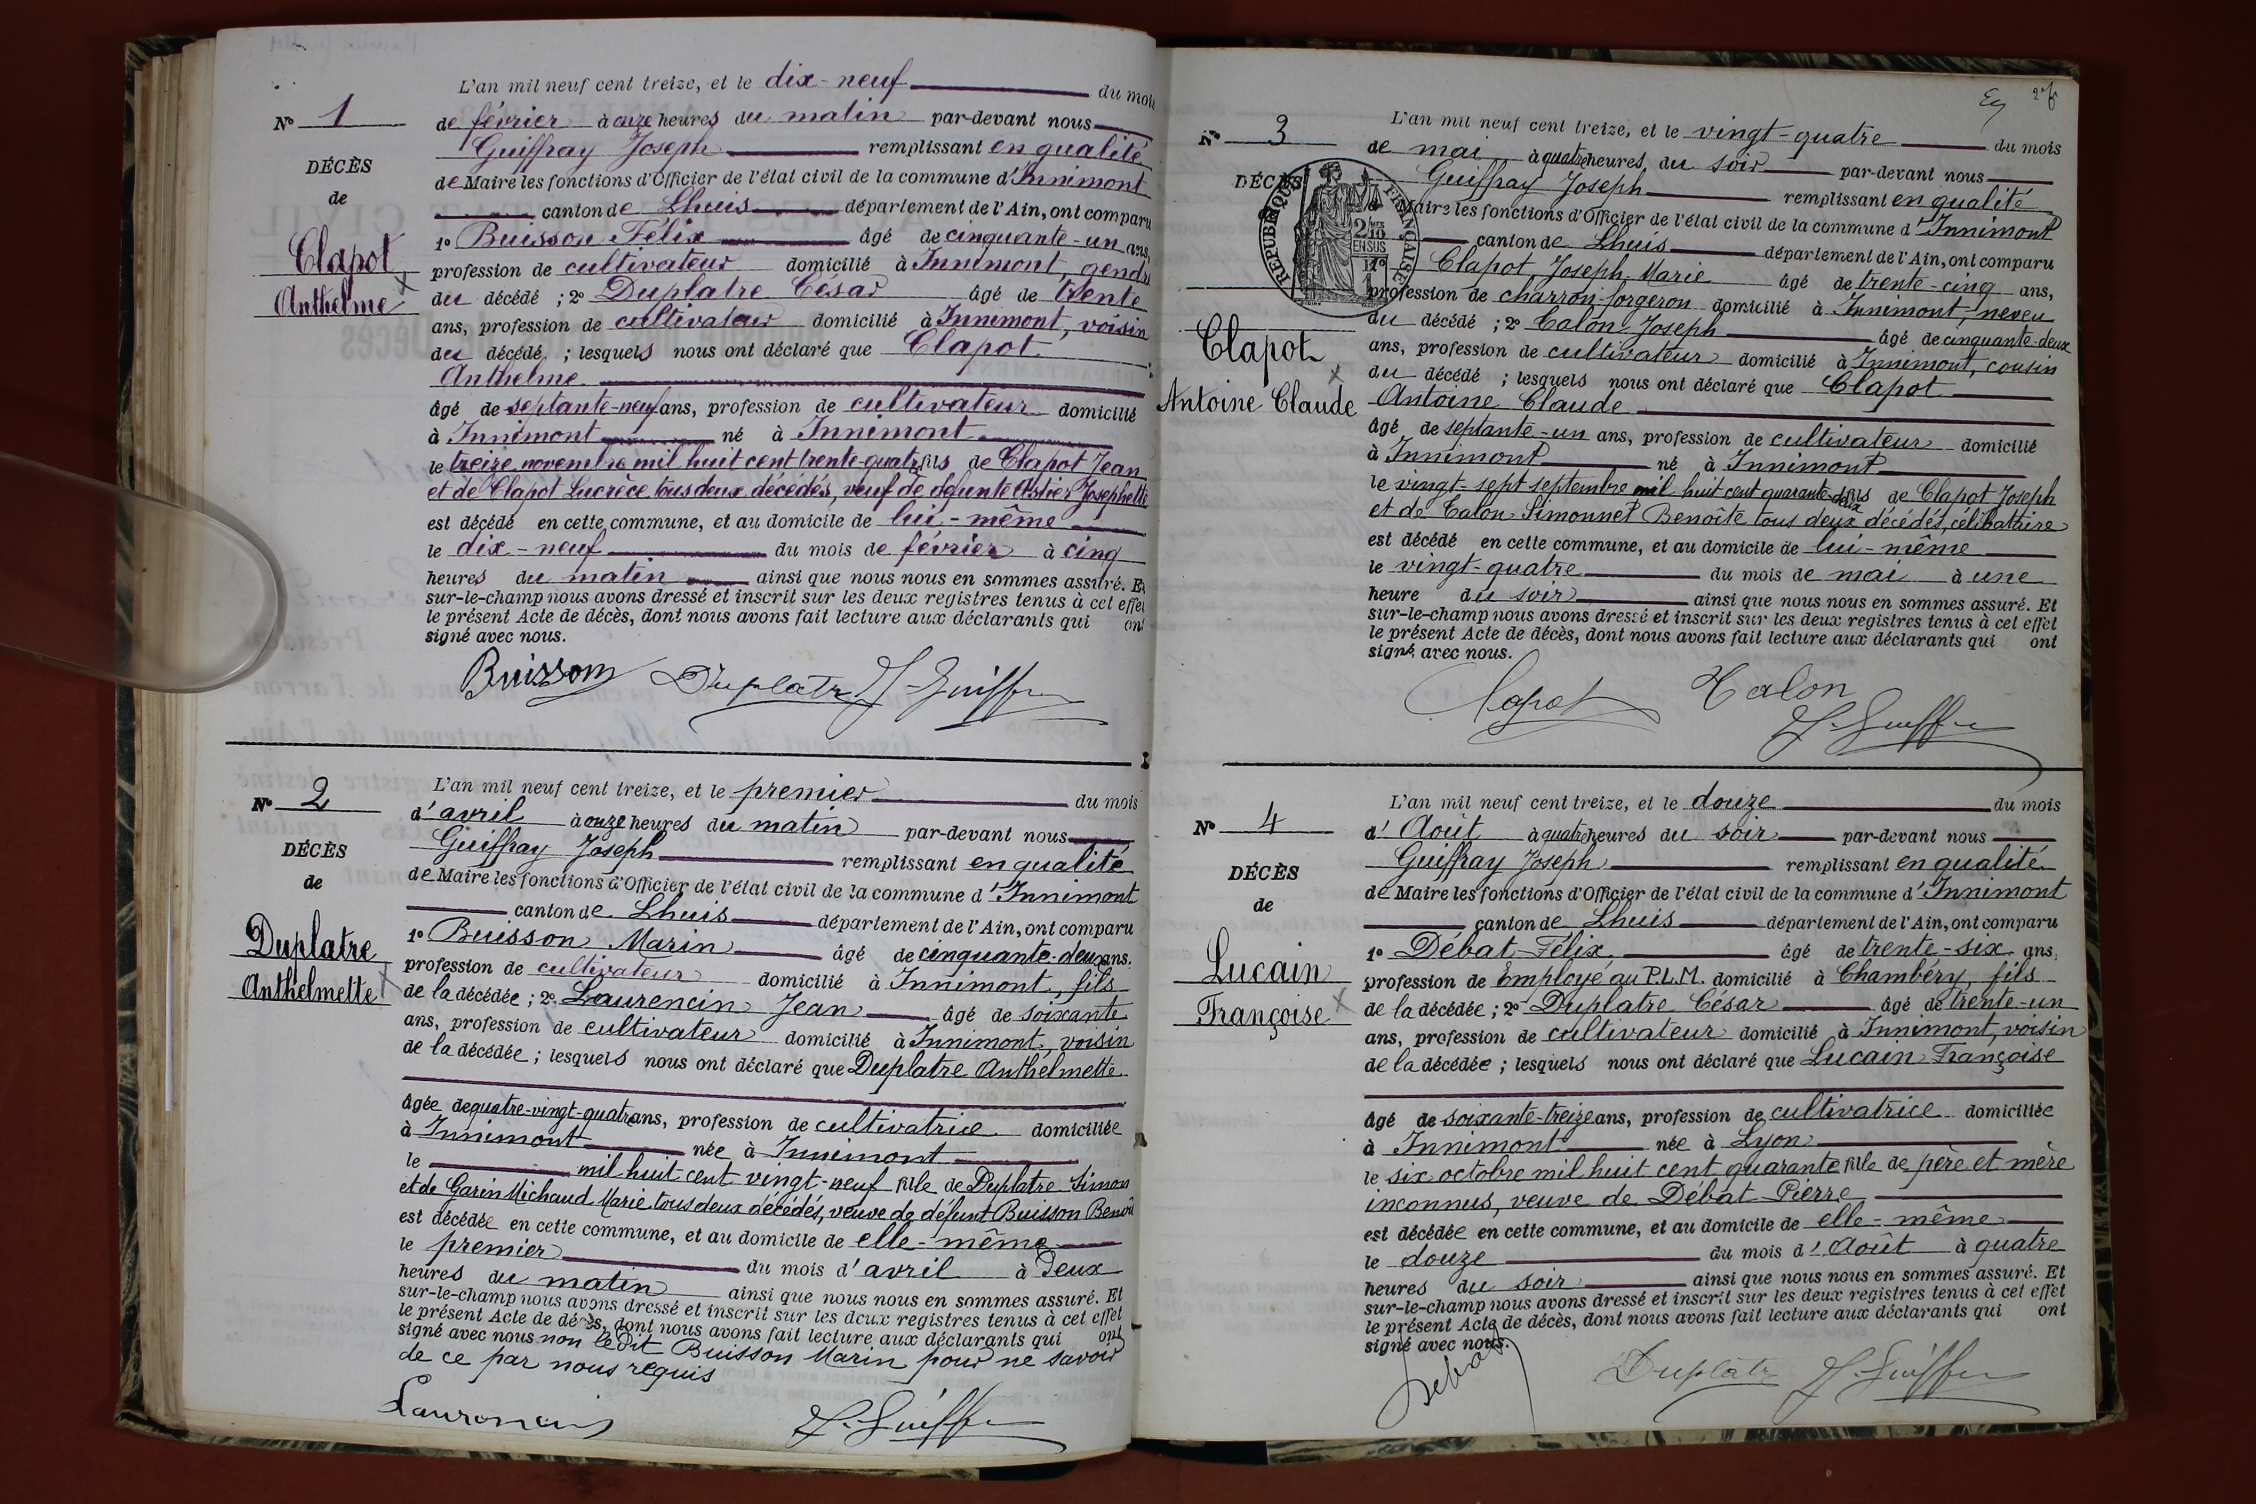 L'an mil neuf cent treize, et le dix-neuf du mois
No 1
de février à onze heures du matin par-devant nous
Guiffray Joseph remplissant en qualité
DÉCÈS
de Maire les fonctions d'Officier de l'état civil de la commune d'Innimont
de
canton de Lhuis département de l'Ain, ont comparu
Clapot
Anthelme
1o Buisson Félix âgé de cinquante-un ans,
profession de cultivateur domicilié à Innimont, gendre
du décédé ; 2o Duplatre César âgé de trente
ans, profession de cultivateur domicilié à Innimont, voisin
du décédé ; lesquels nous ont déclaré que Clapot
Anthelme
âgé de septante-neuf ans, profession de cultivateur domicilié
à Innimont né à Innimont
le treize novembre mil huit cent trente-quatre fils de Clapot Jean
et de Clapot Lucrèce tous deux décédés, veuf de défunte Astier Josephette
est décédé en cette commune, et au domicile de lui-même
le dix-neuf du mois de février à cinq
heures du matin ainsi que nous nous en sommes assuré. Et
sur-le-champ nous avons dressé et inscrit sur les deux registres tenus à cet effet
le présent Acte de décès, dont nous avons fait lecture aux déclarants qui ont
signé avec nous.
Buisson Duplatre J. Guiffray
L'an mil neuf cent treize, et le premier du mois
No 2
d'avril à onze heures du matin par-devant nous
Guiffray Joseph remplissant en qualité
DÉCÈS
de Maire les fonctions d'Officier de l'état civil de la commune d'Innimont
de
canton de Lhuis département de l'Ain, ont comparu
Duplatre
Anthelmette
1o Buisson Marin âgé de cinquante-deux ans.
profession de cultivateur domicilié à Innimont, fils
de la décédée ; 2o Laurencin Jean âgé de soixante
ans, profession de cultivateur domicilié à Innimont, voisin
de la décédée ; lesquels nous ont déclaré que Duplatre Anthelmette
âgée de quatre-vingt-quatre ans, profession de cultivatrice domiciliée
à Innimont née à Innimont
le mil huit cent vingt-neuf fille de Duplatre Simon
et de Garin Michaud Marie tous deux décédés, veuve de défunt Buisson Benoît
est décédée en cette commune, et au domicile de elle-même
le premier du mois d'avril à Deux
heures du matin ainsi que nous nous en sommes assuré. Et
sur-le-champ nous avons dressé et inscrit sur les deux registres tenus à cet effet
le présent Acte de décès, dont nous avons fait lecture aux déclarants qui ont
signé avec nous non ledit Buisson Marin pour ne savoir
de ce par nous requis
Laurencin J. Guiffray
L'an mil neuf cent treize, et le vingt-quatre du mois
No 3
de mai à quatre heures du soir par-devant nous
Guiffray Joseph remplissant en qualité
DÉCÈS
Maire les fonctions d'Officier de l'état civil de la commune d'Innimont
RÉPUBLIQUE FRANÇAISE
2/10 EN SUS
canton de Lhuis département de l'Ain, ont comparu
Clapot
Antoine Claude
1o Clapot Joseph Marie âgé de trente-cinq ans,
profession de charron-forgeron domicilié à Innimont, neveu
du décédé ; 2o Talon Joseph âgé de cinquante-deux
ans, profession de cultivateur domicilié à Innimont, cousin
du décédé ; lesquels nous ont déclaré que Clapot
Antoine Claude
âgé de septante-un ans, profession de cultivateur domicilié
à Innimont né à Innimont
le vingt-sept septembre mil huit cent quarante-deux fils de Clapot Joseph
et de Talon Simonnet Benoîte tous deux décédés, célibataire
est décédé en cette commune, et au domicile de lui-même
le vingt-quatre du mois de mai à une
heure du soir ainsi que nous nous en sommes assuré. Et
sur-le-champ nous avons dressé et inscrit sur les deux registres tenus à cet effet
le présent Acte de décès, dont nous avons fait lecture aux déclarants qui ont
signé avec nous.
Clapot Talon
J. Guiffray
L'an mil neuf cent treize, et le douze du mois
No 4
d'Août à quatre heures du soir par-devant nous
Guiffray Joseph remplissant en qualité
DÉCÈS
de Maire les fonctions d'Officier de l'état civil de la commune d'Innimont
de
canton de Lhuis département de l'Ain, ont comparu
Lucain
Françoise
1o Débat Félix, âgé de trente-six ans,
profession de Employé au P.L.M. domicilié à Chambéry, fils
de la décédée ; 2o Duplatre César âgé de trente-un
ans, profession de cultivateur domicilié à Innimont, voisin
de la décédée ; lesquels nous ont déclaré que Lucain Françoise
âgé de soixante-treize ans, profession de cultivatrice domiciliée
à Innimont née à Lyon
le six octobre mil huit cent quarante fille de père et mère
inconnus, veuve de Débat Pierre
est décédée en cette commune, et au domicile de elle-même
le douze du mois d'Août à quatre
heures du soir ainsi que nous nous en sommes assuré. Et
sur-le-champ nous avons dressé et inscrit sur les deux registres tenus à cet effet
le présent Acte de décès, dont nous avons fait lecture aux déclarants qui ont
signé avec nous.
Debat Duplatre J. Guiffray